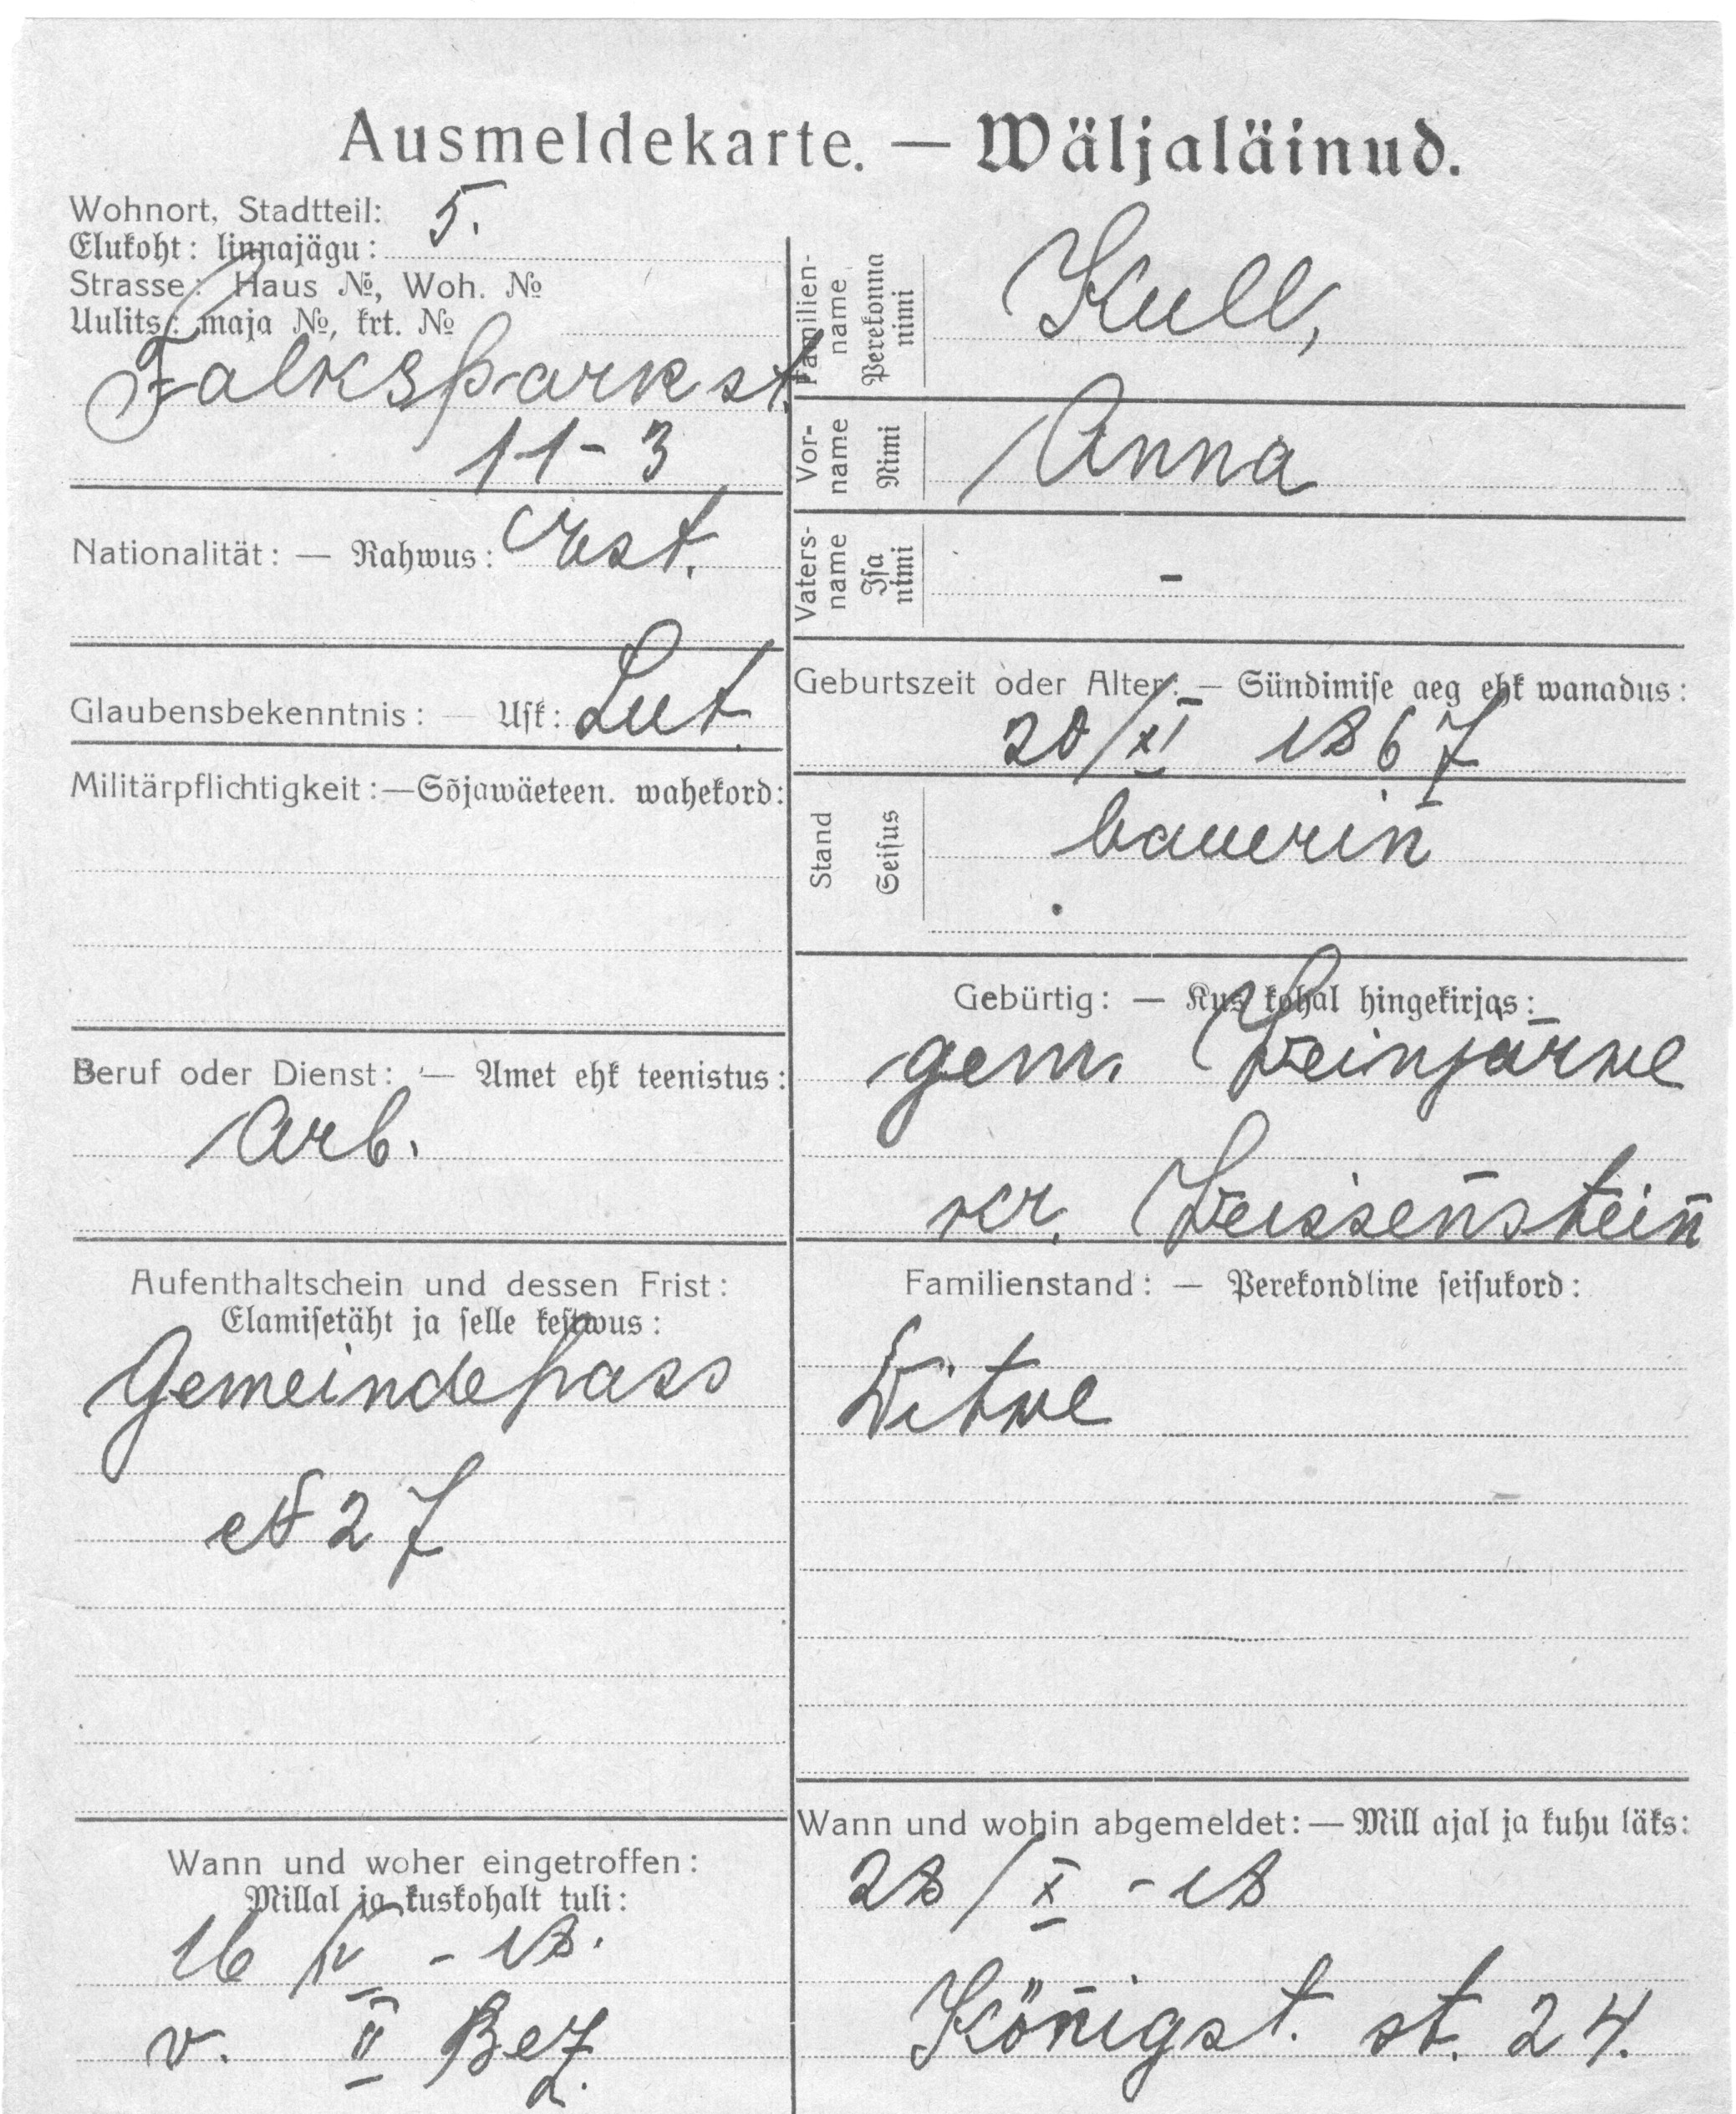 Ausmeldekarte. — Wäljaläinud.
Wohnort, Stadtteil: 5.
Elukoht: linnajägu:
Strasse: Haus №, Woh. №
Uulits: maja №, krt. №
Falkspark st.
11-3
Nationalität: — Rahwus: Est.
Glaubensbekenntnis: — Usk: Lut.
Militärpflichtigkeit:—Sõjawäeteen. wahekord:
Beruf oder Dienst: — Amet ehk teenistus:
Arb.
Aufenthaltschein und dessen Frist:
Elamisetäht ja selle kestwus:
Gemeindepass
№ 27
Wann und woher eingetroffen:
Millal ja kuskohalt tuli:
16/IV - 18.
v. II Bez.
Familien-
name
Perekonna
nimi
Kull,
Vor-
name
Nimi
Anna
Vaters-
name
Isa
nimi
-
Geburtszeit oder Alter: — Sündimise aeg ehk wanadus:
20/XI 1867
Stand
Seisus
bauerin
Gebürtig: — Kus kohal hingekirjas:
gem. Weinjärwe
kr. Weissenstein
Familienstand: — Perekondline seisukord:
Witwe
Wann und wohin abgemeldet: — Mill ajal ja kuhu läks:
28/X - 18
Königst. st. 24.